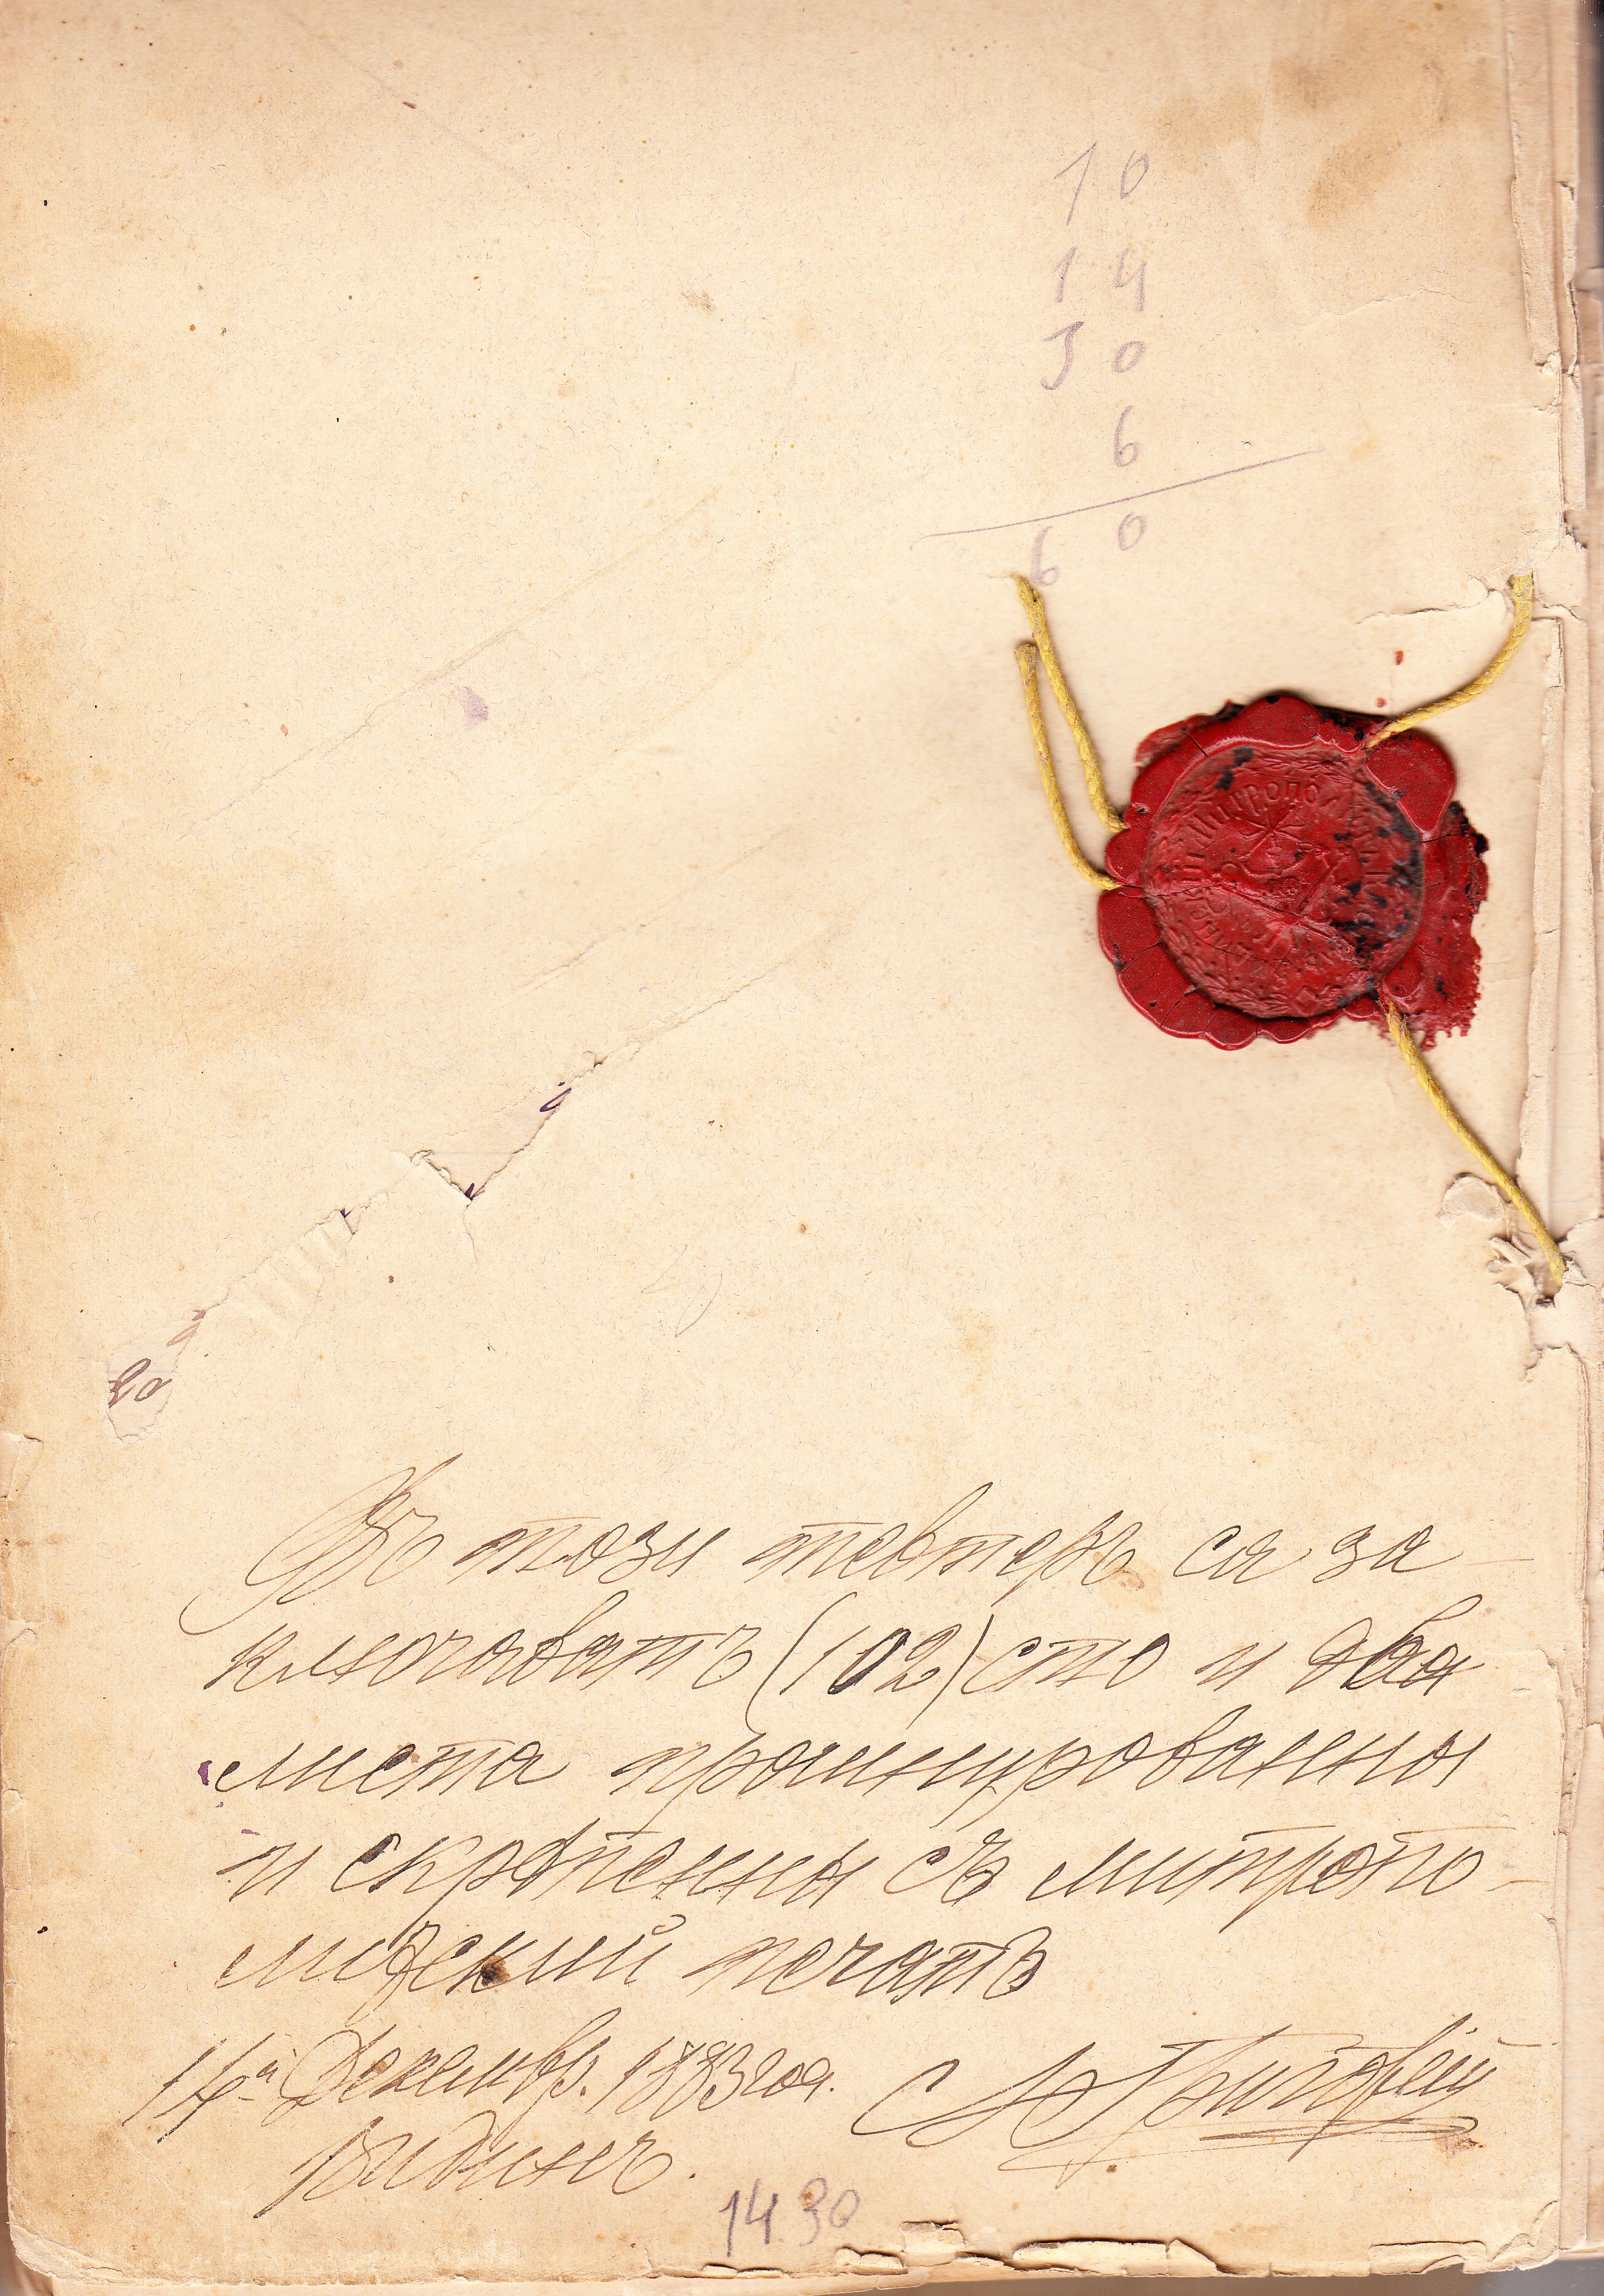 10
14
30
6
60
20
Въ този тевтеръ ся за-
ключаватъ (102) сто и два
листа прошнурованны
и скрѣпенны съ митропо-
лидский печатъ
14й Декемвр. 1883 год.
Видинъ.
Григорий
1430